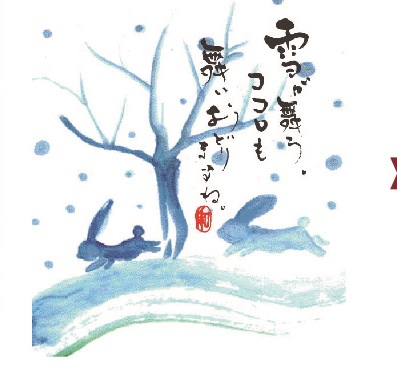 雪が舞う、
ココロも
舞いおどりますね。